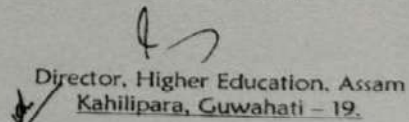 Director, Higher Education, Assam
Kahilipara, Guwahati – 19.